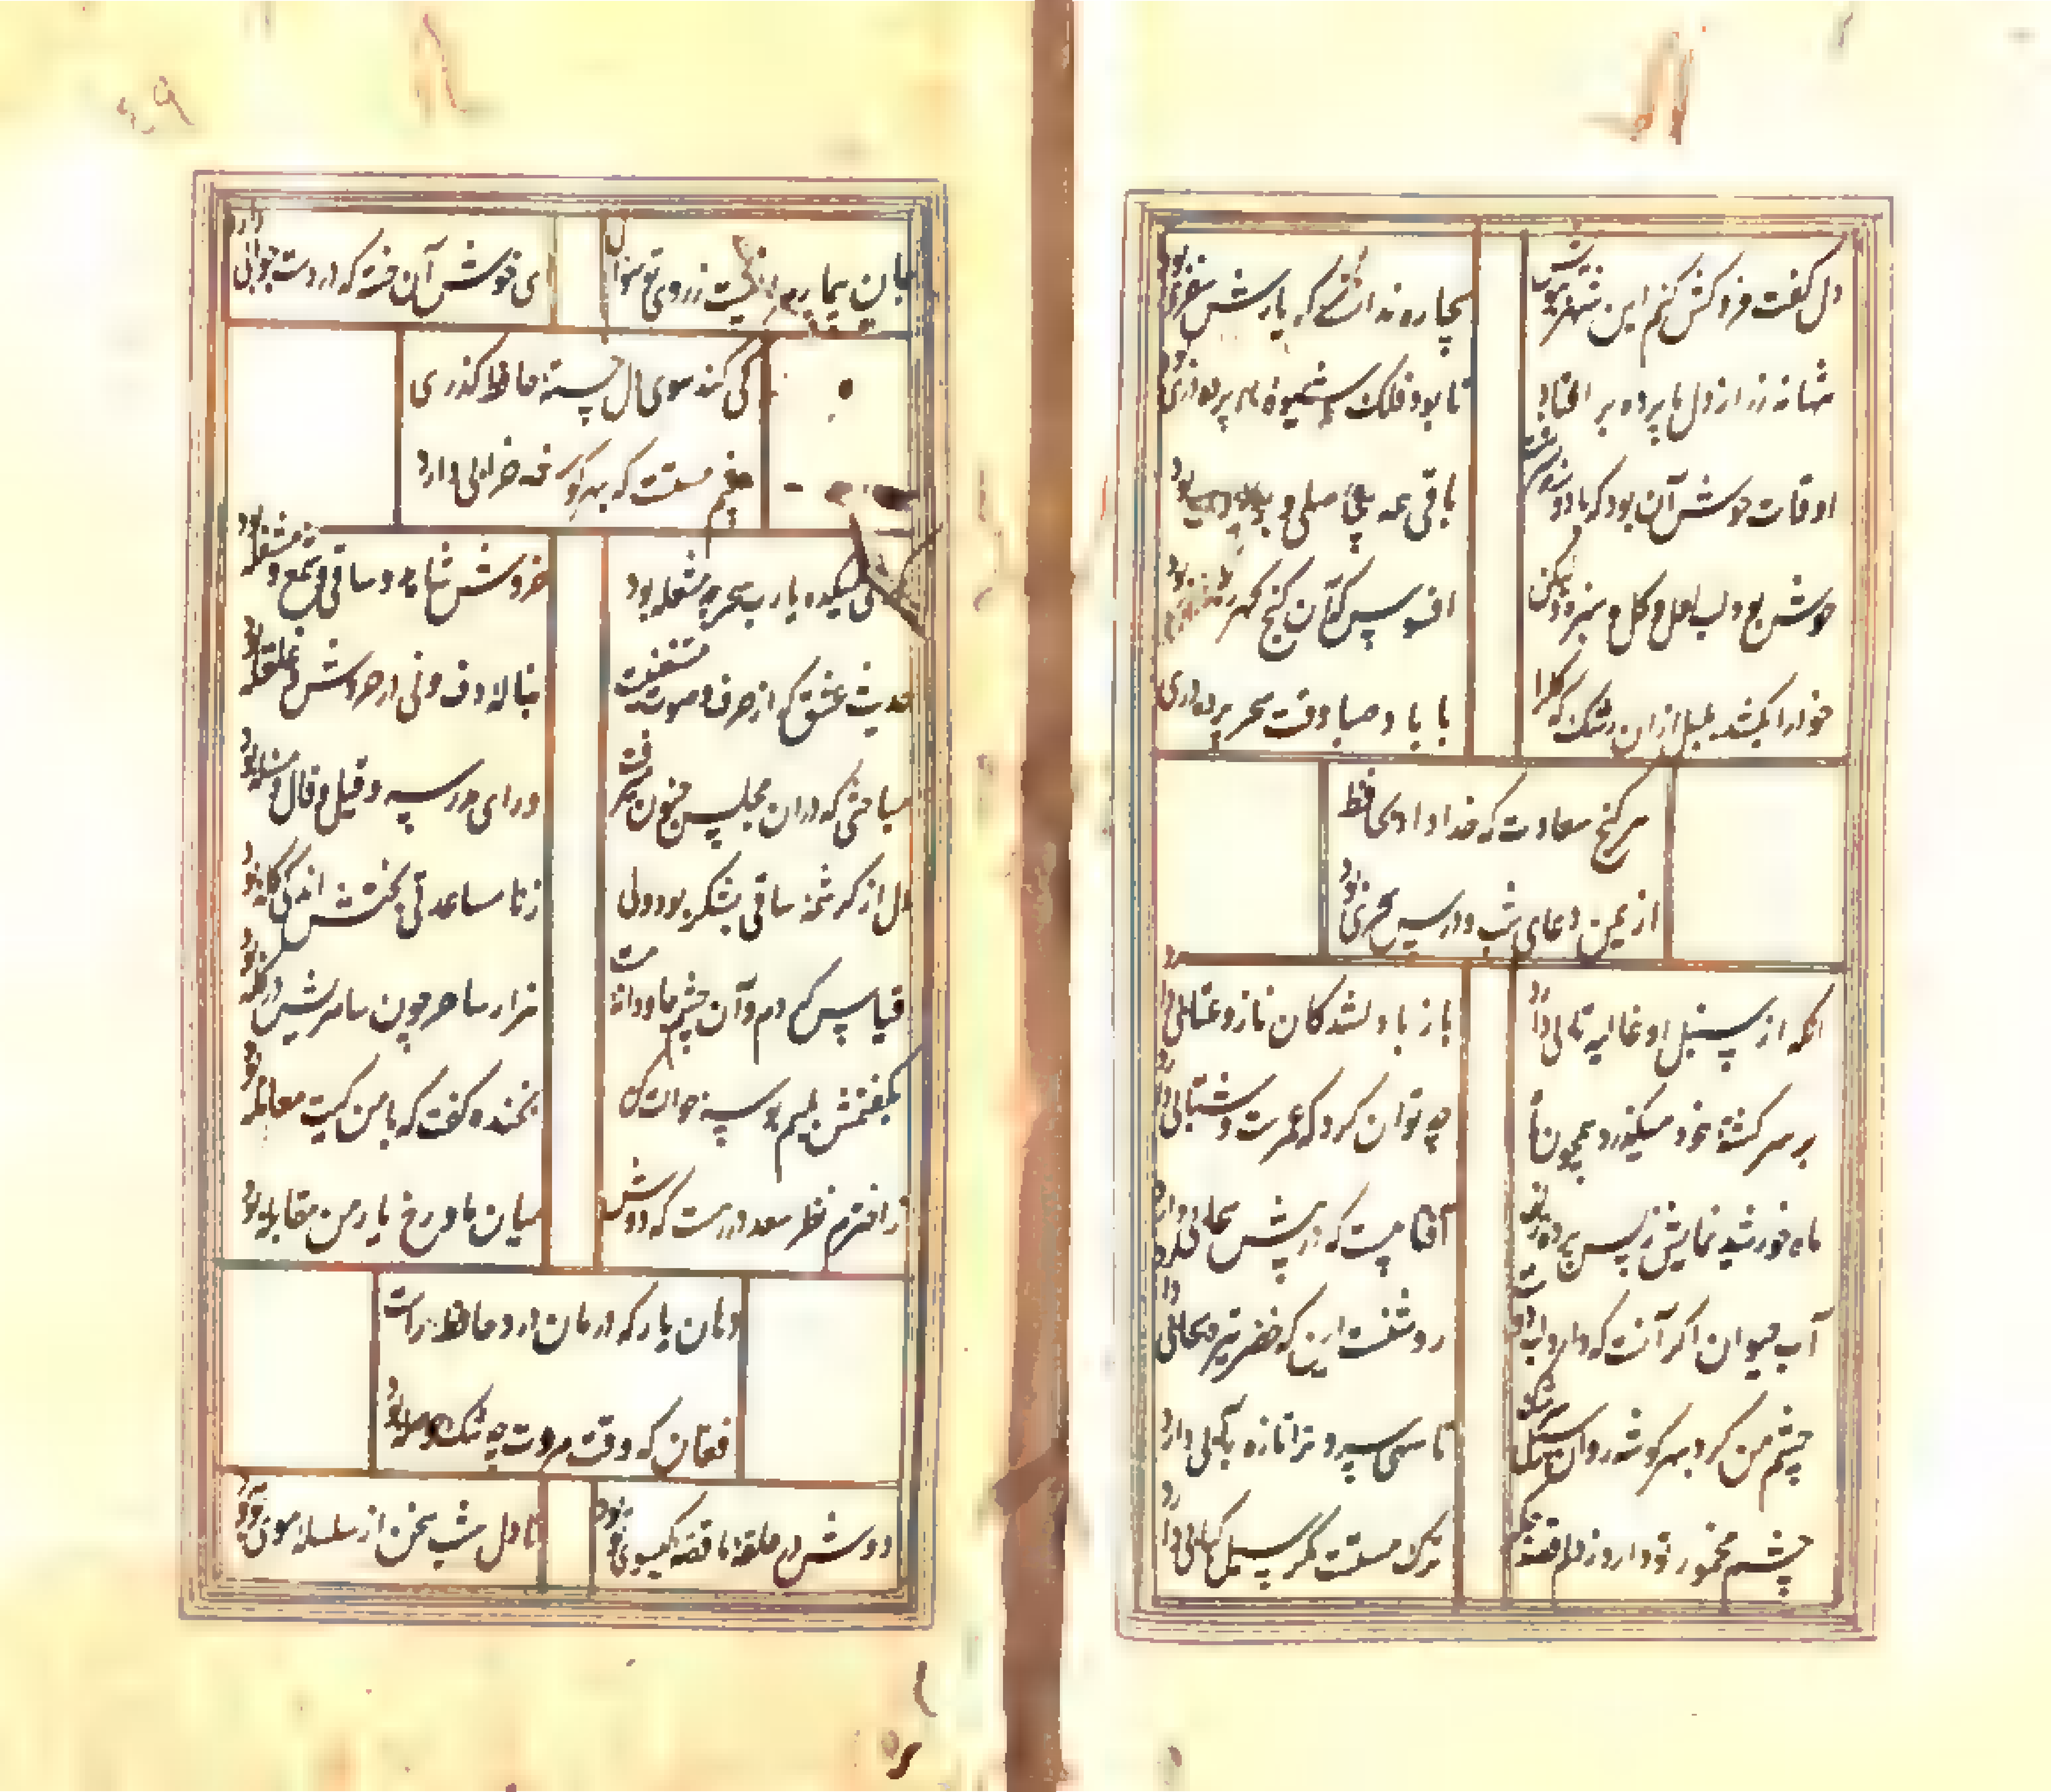 دل گفت فروکش کنم این شهر ببویش بیچاره ندانست که یارش سفری بود
تنها نه ز راز دل ما پرده بر افتاد تا بود فلک شیوهٔ او پرده دری بود
اوقات خوش آن بود که با دوست باقی همه بی حاصلی و بود
خوش بود لب و گل و سبزه ولیکن افسوس که آن گنج گهر بود
خود را بکشد بلبل ازین رشک که گل را با باد صبا وقت سحر پرده دری
هر گنج سعادت که خدا داد بحافظ
از یمن دعای شب و درس سحری بود
آنکه از سنبل او غالیه تابی دارد باز با دلشدگان ناز و عتابی دارد
بر سر کشتهٔ خود میگذرد همچون باد چه توان کرد که عمرست و شتابی دارد
ماه خورشید نمایش ز پس پرده زلف آفتابیست که در پیش سحابی دارد
آب حیوان اگر آنست که دارد لب دوست روشنست این که خضر بهره سرابی دارد
چشم من کرد بهر گوشه روان سیل سرشک تا سهی سرو ترا تازه بآبی دارد
چشم مخمور تو دارد ز دلم قصد جگر ترک مستست مگر میل کبابی دارد
جان بیمار مرا نیست ز تو روی سوال ای خوش آن خسته که از دوست جوابی دارد
کی کند سوی دل خستهٔ حافظ گذری
چشم مستت که بهر گوشه خرابی دارد
یارب سحر چه مشغله بود خروش شاهد و ساقی و شمع و مشعله بود
حدیث عشق که از حرف و صوت مستغنیست بنالهٔ دف و نی در خروش و غلغله بود
مباحثی که در آن مجلس جنون میرفت ورای مدرسه و قیل و قال و مسئله بود
دل از کرشمهٔ ساقی بشکر بود ولی ز نامساعدتی بختش اندکی گله بود
قیاس کردم و آن چشم جاودانهٔ مست هزار ساحر چون سامریش در گله بود
بگفتمش بلبم بوسه حوالت کن بخنده گفت که با من کیت معامله بود
ز اخترم نظر سعد در رهست که دوش میان ماه و رخ یار من مقابله بود
دهان یار که درمان درد حافظ داشت
فغان که وقت مروت چه تنگ حوصله بود
دوش در حلقهٔ ما قصهٔ گیسوی تو بود تا دل شب سخن از سلسلهٔ موی تو بود